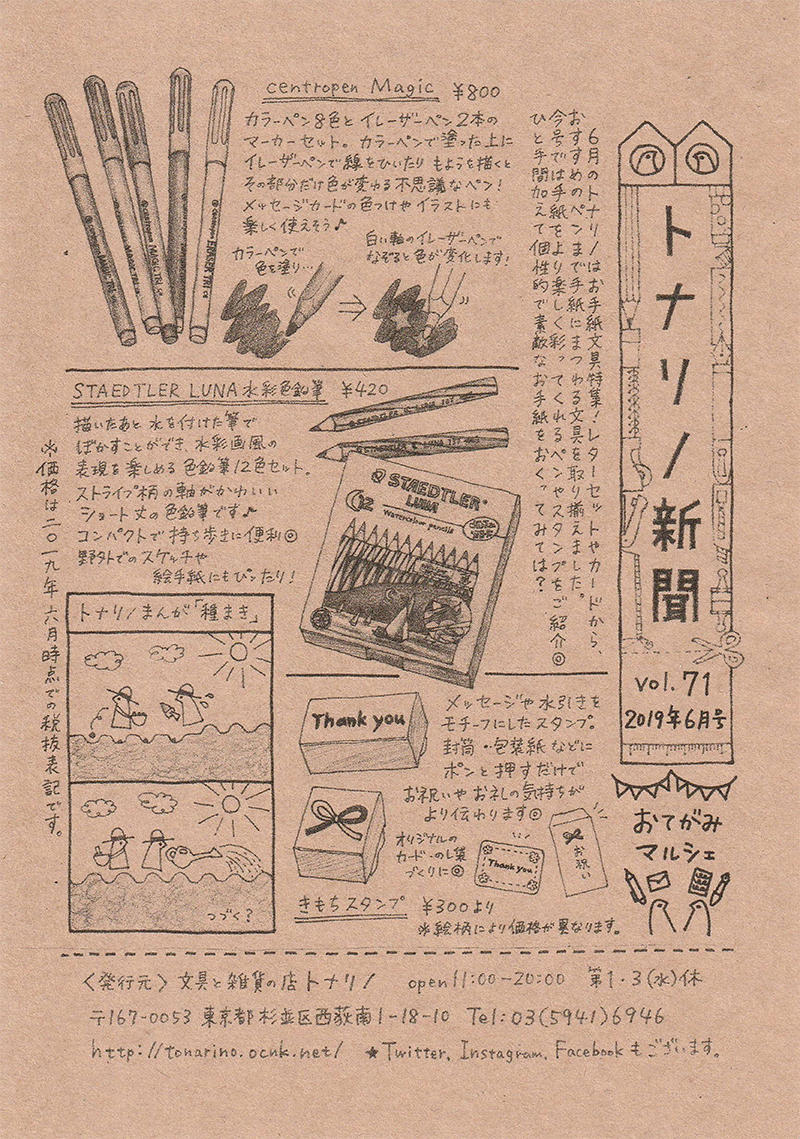 トナリノ新聞
vol. 71
2019年6月号
おてがみ
マルシェ
6月のトナリノはお手紙文具特集！レターセットやカードから、
おすすめのペンまで手紙にまつわる文具を取り揃えました。
今号では手紙をより楽しく彩ってくれるペンやスタンプをご紹介◎
ひと手間加えて個性的で素敵なお手紙をおくってみては？
centropen Magic ¥800
カラーペン8色とイレーザーペン2本の
マーカーセット。カラーペンで塗った上に
イレーザーペンで線をひいたりもようを描くと
その部分だけ色が変わる不思議なペン！
メッセージカードの色つけやイラストにも
楽しく使えそう♪
カラーペンで
色を塗り…
白い軸のイレーザーペンで
なぞると色が変化します！
STAEDTLER LUNA 水彩色鉛筆 ¥420
描いたあと水を付けた筆で
ぼかすことができ、水彩画風の
表現を楽しめる色鉛筆12色セット。
ストライプ柄の軸がかわいい
ショート丈の色鉛筆です♪
コンパクトで持ち歩きに便利◎
野外でのスケッチや
絵手紙にもぴったり！
STAEDTLER
LUNA
12
Watercolour pencils
※価格は二〇一九年六月時点での税抜表記です。
トナリノまんが「種まき」
つづく？
Thank you
メッセージや水引きを
モチーフにしたスタンプ。
封筒・包装紙などに
ポンと押すだけで
お祝いやお礼の気持ちが
より伝わります◎
オリジナルの
カードやのし袋
づくりに◎
Thank you
お祝い
きもちスタンプ ¥300より
※絵柄により価格が異なります。
〈発行元〉文具と雑貨の店トナリノ open 11:00-20:00 第1・3(水)休
〒167-0053 東京都杉並区西荻南1-18-10 Tel:03(5941)6946
http://tonarino.ocnk.net/ ★Twitter, Instagram, Facebookもございます。